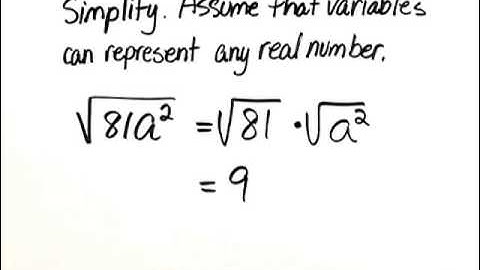 Simplify. Assume that variables
can represent any real number.
√81a² = √81 · √a²
= 9